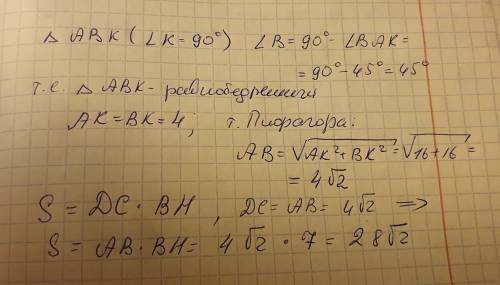 △ ABK (∠K = 90°) ∠B = 90° - ∠BAK =
= 90° - 45° = 45°
т.е. △ ABK - равнобедренный
AK = BK = 4; т. Пифагора:
AB = √AK² + BK² = √16 + 16 =
= 4√2
S = DC · BH, DC = AB = 4√2 =>
S = AB · BH = 4√2 · 7 = 28√2